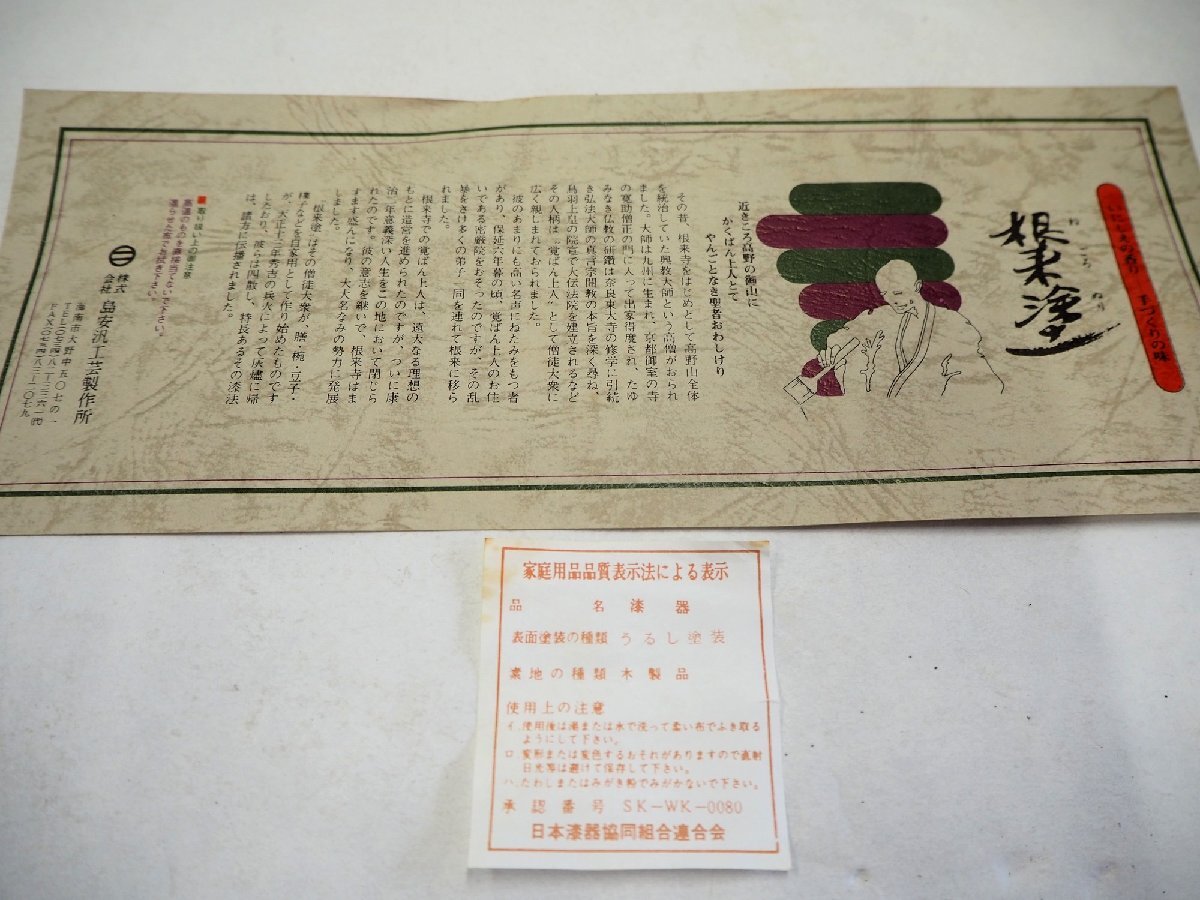 いにしえの香り──手づくりの味
根来塗
ねごろぬり
近きころ高野の御山に
かくばん上人とて
やんごとなき聖者おわしけり
その昔、根来寺をはじめとして高野山全体
を統治していた興教大師という高僧がおられ
ました。大師は九州に生まれ、京都御室の寺
の寛助僧正の門に入って出家得度され、たゆ
みなく仏教の研鑽は奈良東大寺の修学に引続
き弘法大師の真言宗開教の本旨を深く尋ね、
鳥羽上皇の院宣で大伝法院を建立されるなど
その人柄は〝覚ばん上人〟として僧徒大衆に
広く親しまれておられました。
彼のあまりにも高い名声にねたみをもつ者
があり、保延六年暮の頃、覚ばん上人のお住
いである密厳院をおそったのですが、その乱
暴をさけ多くの弟子一同を連れて根来に移ら
れました。
根来寺での覚ばん上人は、遠大なる理想の
もとに造営を進められたのですが、ついに康
治二年意義深い人生をこの地において閉じら
れたのです。彼の意志を継いで、根来寺はま
すます盛んになり、大大名なみの勢力に発展
しました。
根来塗はその僧徒大衆が、膳・椀・豆子・
様子などを自家用として作り始めたものです
が、天正十三年秀吉の兵火によって灰燼に帰
したおり、彼らは四散し、特長あるその漆法
は、諸方に伝播されました。
■取り扱い上の御注意
高温のものを直接当てないで下さい。
湿らせた布でお拭き下さい。
株式会社 島安汎工芸製作所
海南市大野中五〇七の一
TEL〇七三四八-二-三六一一(代)
FAX〇七三四八-三-一〇七九
家庭用品品質表示法による表示
品名 漆器
表面塗装の種類 うるし塗装
素地の種類 木製品
使用上の注意
イ.使用後は湯または水で洗って柔い布でふき取る
ようにして下さい。
ロ.変形または変色するおそれがありますので直射
日光等は避けて保存して下さい。
ハ.たわしまたはみがき粉でみがかないで下さい。
承認番号 SK-WK-0080
日本漆器協同組合連合会